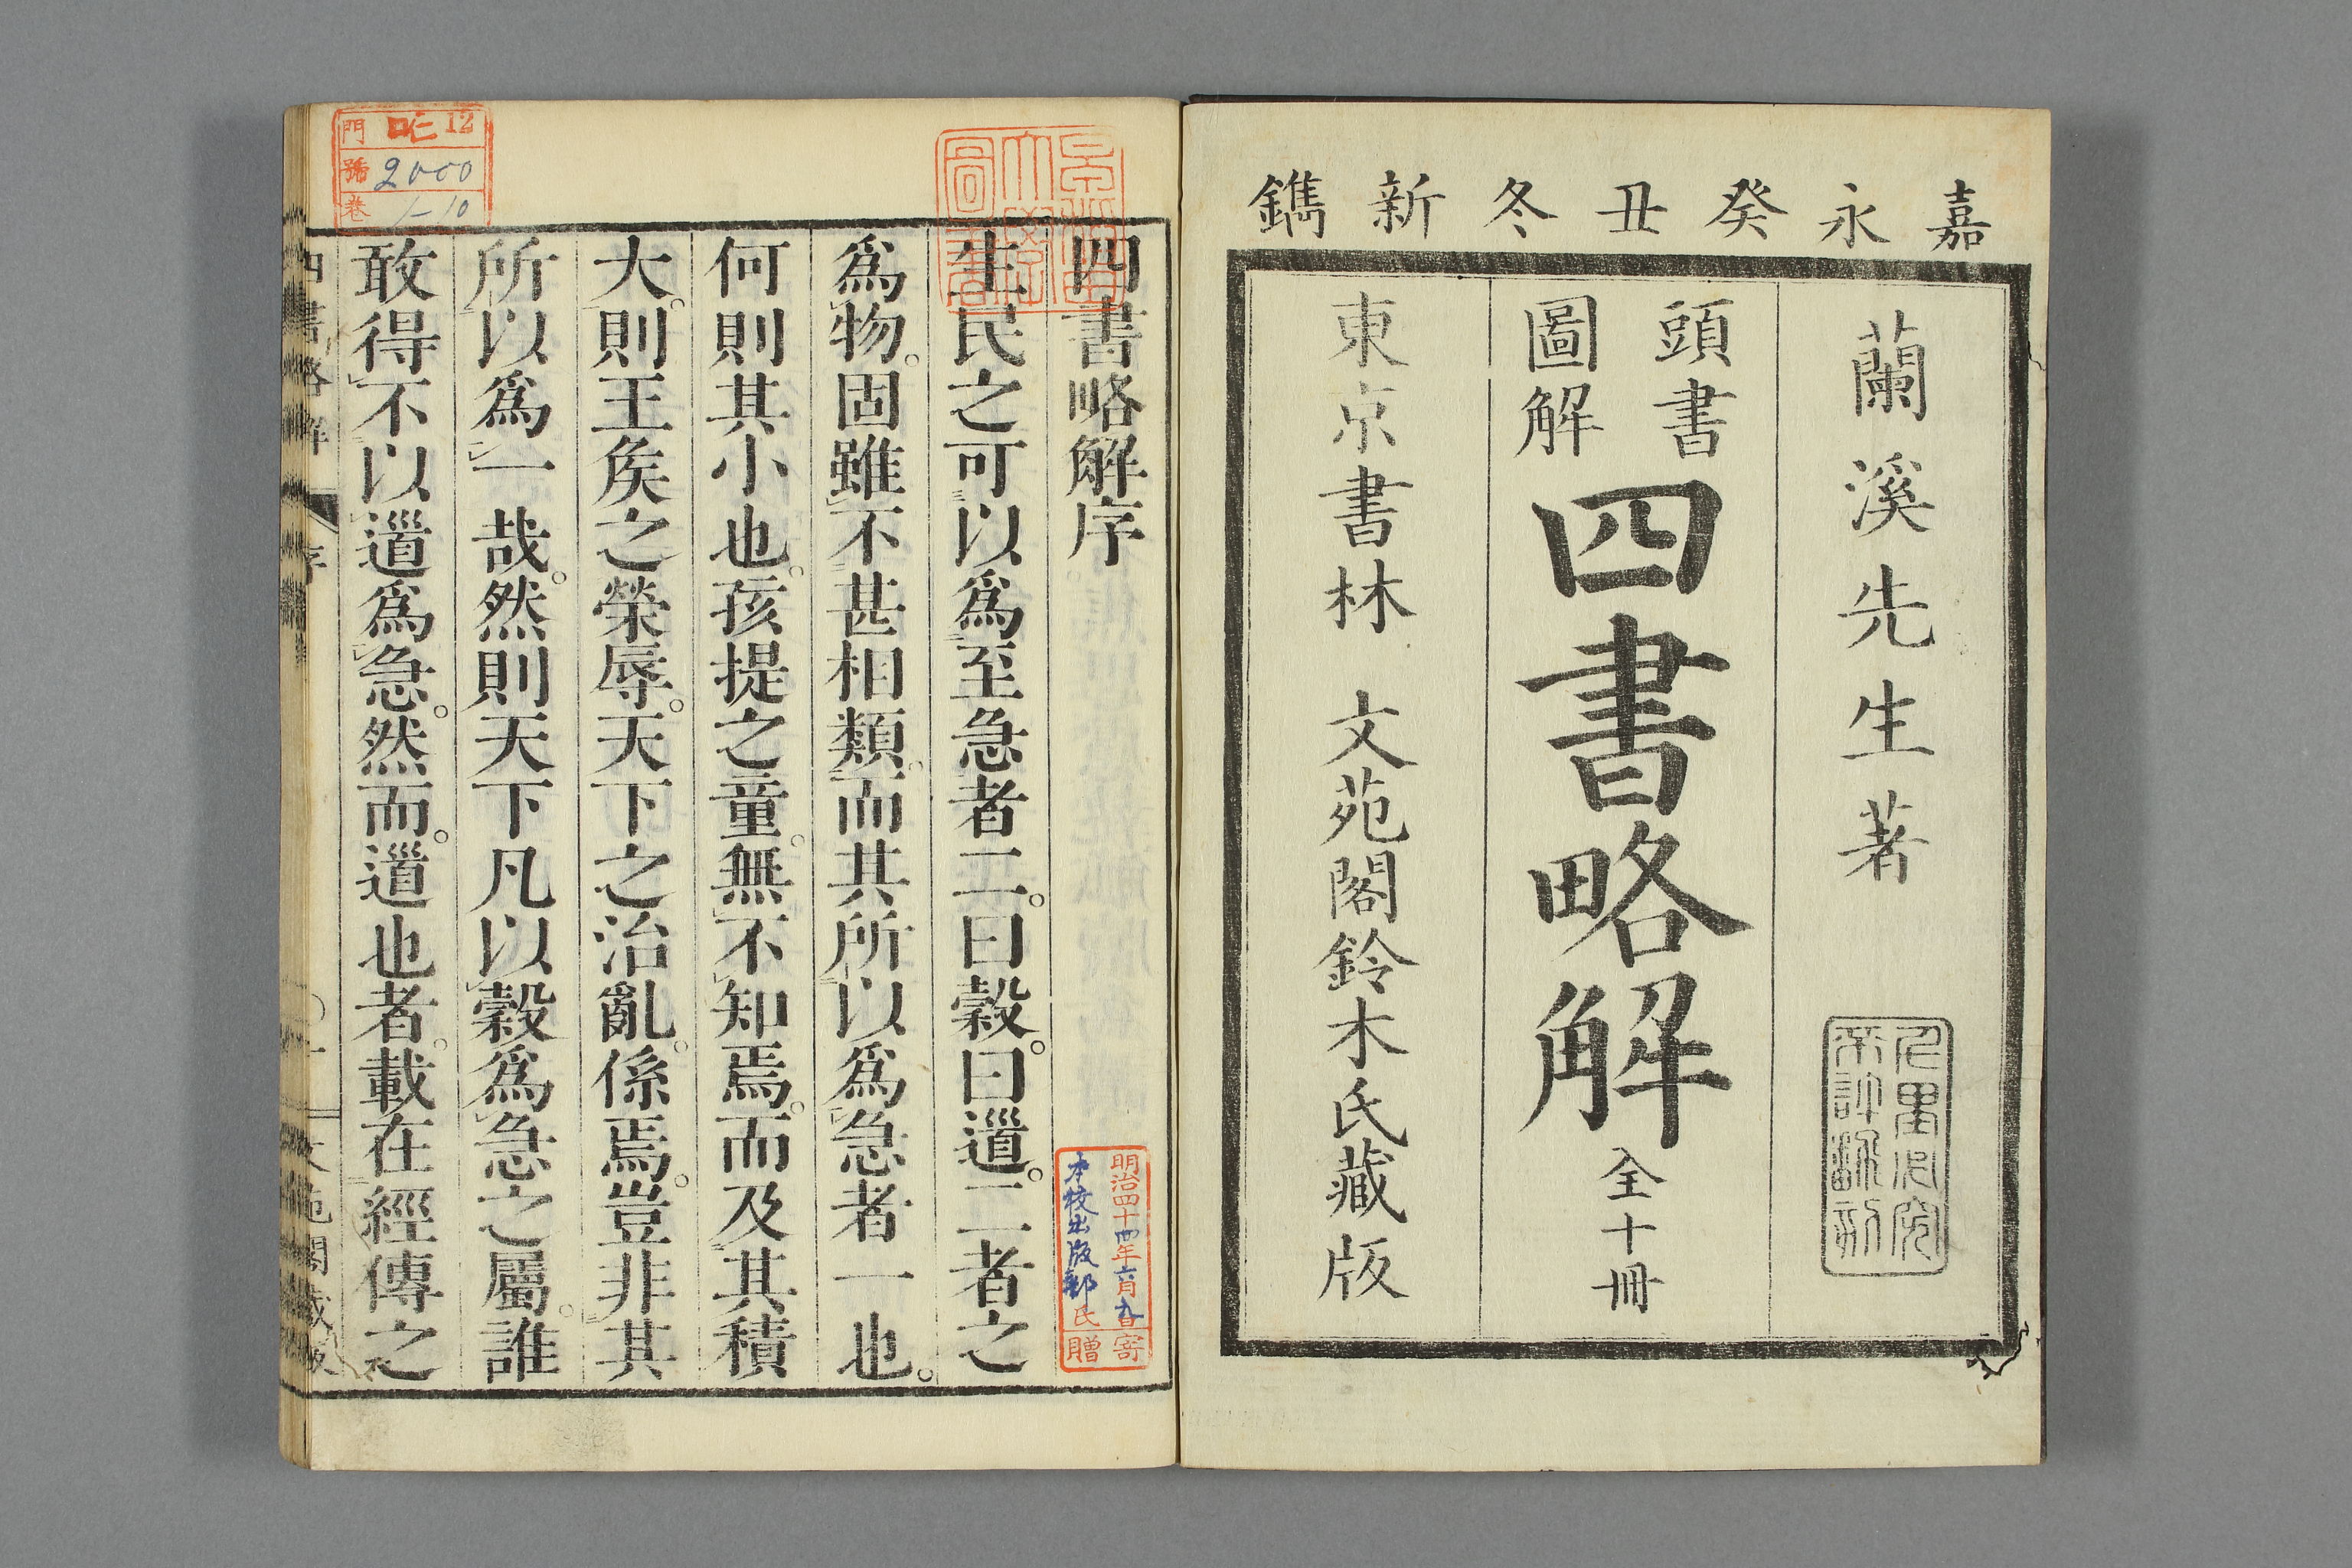 嘉永癸丑冬新鐫
蘭溪先生著
頭書
圖解
四書略解
全十冊
東京書林　文苑閣鈴木氏藏版
四書略解序
生民之可以爲至急者二。曰穀。曰道。二者之
爲物。固雖不甚相類。而其所以爲急者一也。
何則其小也。孩提之童。無不知焉。而及其積
大。則王矦之榮辱。天下之治亂。係焉。豈非其
所以爲一哉。然則天下凡以穀爲急之屬。誰
敢得不以道爲急。然而。道也者。載在經傳之
四書略解
序
文苑閣藏版
門 12
號 2000
卷 1-10
明治四十四年六月九日寄
本校出版部氏
贈